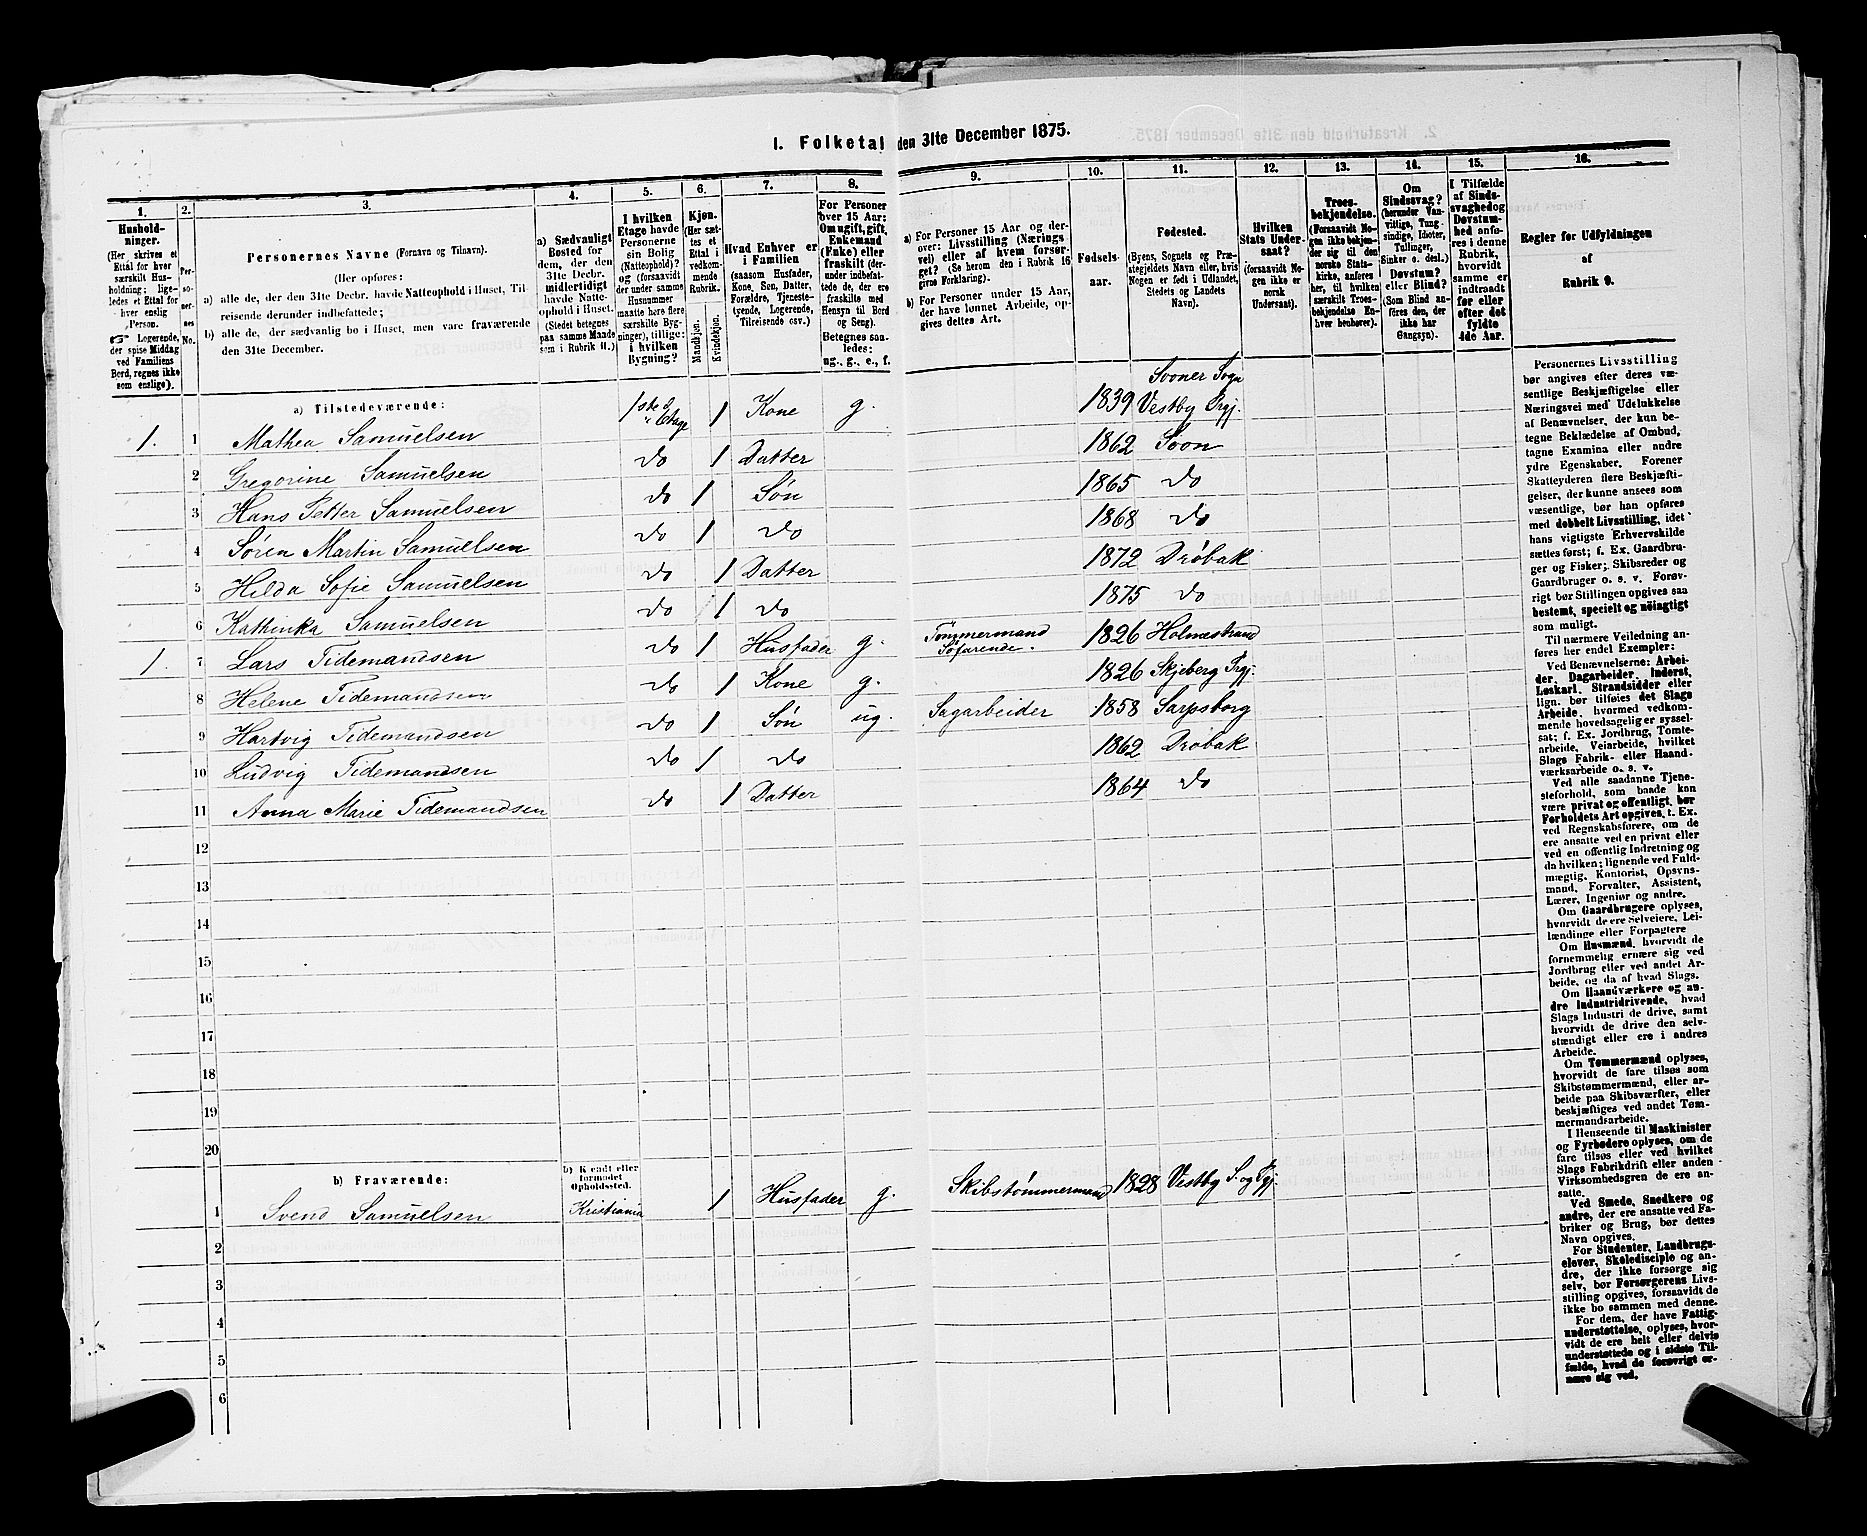 1. Folketal den 31te December 1875.
1.
Husholdninger.
(Her skrives et
Ettal for hver
særskilt Husholdning; ligeledes
et Ettal for
hver enslig
Person.
Logerende,
der spise Middag
ved Familiens
Bord, regnes ikke
som enslige).
2.
Personernes
No.
3.
Personernes Navne (Fornavn og Tilnavn).
(Her opføres:
a) alle de, der den 31te Decbr. havde Natteophold i Huset, Tilreisende derunder indbefattede;
b) alle de, der sædvanlig bo i Huset, men vare fraværende
den 31te December.
4.
a) Sædvanligt
Bosted for
dem, der den
31te Decbr.
midlertidigt
havde Natteophold i Huset.
(Stedet betegnes
paa samme Maade
som i Rubrik 11.)
5.
I hvilken
Etage havde
Personerne
sin Bolig
(Natteophold)?
og (forsaavidt
der under samme
Husnummer
maatte høre flere
særskilte Bygninger), tillige:
i hvilken
Bygning?
6.
Kjøn.
(Her sættes et
Ettal i
vedkommende
Rubrik.
Mandkjøn.
Kvindekjøn.
7.
Hvad Enhver er
i Familien
(saasom Husfader,
Kone, Søn, Datter,
Forældre, Tjenestetyende, Logerende,
Tilreisende osv.)
8.
For Personer
over 15 Aar:
Om ugift, gift,
Enkemand
(Enke) eller
fraskilt (derunder indbefattede de, der ere
fraskilte med
Hensyn til Bord
og Seng).
Betegnes saaledes:
ug., g., e., f.
9.
a) For Personer 15 Aar og derover: Livsstilling (Næringsvei) eller af kvem forsørget? (Se herom den i Rubrik 16
givne Forklaring).
b) For Personer under 15 Aar,
der have lønnet Arbeide, opgives dettes Art.
10.
Fødselsaar.
11.
Fødested.
(Byens, Sognets og Præstegjeldets Navn eller, hvis
Nogen er født i Udlandet,
Stedets og Landets
Navn).
12.
Hvilken
Stats Undersaat?
(forsaavidt Nogen ikke er
norsk
Undersaat).
13.
Troesbekjendelse.
(Forsaavidt Nogen ikke bekjender sig til den
norske Statskirke, anføres
her, til hvilken
særskilt Troesbekjendelse Enhver henhører).
14.
Om
Sindssvag?
(herunder Vanvittige, Tungsindige, Idioter,
Tullinger,
Sinker o. desl.)
Døvstum?
eller Blind?
(Som Blind anføres den, der
ikke har
Gangsyn).
15.
I Tilfælde
af Sindssvaghed og
Døvstumhed anføres i denne
Rubrik,
hvorvidt
samme er
indtraadt
før eller
efter det
fyldte
4de Aar.
16.
Regler for Udfyldningen
af
Rubrik 9.
a) Tilstedeværende:
1. 1 Mathea Samuelsen 1ste Etage 1 Kone g. 1839 Sooner Sogn Vestby Prgj.
2 Gregorine Samuelsen do 1 Datter 1862 Soon
3 Hans Petter Samuelsen do 1 Søn 1865 do
4 Søren Martin Samuelsen do 1 do 1868 do
5 Hilda Sofie Samuelsen do 1 Datter 1872 Drøbak
6 Kathinka Samuelsen do 1 do 1875 do
1. 7 Lars Tidemandsen do 1 Husfader g. Tømmermand Søfarende. 1826 Holmestrand
8 Helene Tidemandsen do 1 Kone g. 1826 Skjeberg Prgj.
9 Hartvig Tidemandsen do 1 Søn ug. Sagarbeider 1858 Sarpsborg
10 Ludvig Tidemandsen do 1 do 1862 Drøbak
11 Anna Marie Tidemandsen do 1 Datter 1864 do
12
13
14
15
16
17
18
19
20
b) Fraværende:
b) Kendt eller
formodet
Opholdssted.
1 Svend Samuelsen Kristiania 1 Husfader g. Skibstømmermand 1828 Vestby S. og Pgj.
2
3
4
5
6
Personernes Livsstilling
bør angives efter deres væsentlige Beskjæftigelse eller
Næringsvei med Udelukkelse
af Benævnelser, der kun betegne Beklædelse af Ombud,
tagne Examina eller andre
ydre Egenskaber. Forener
Skatteyderen flere Beskjæftigelser, der kunne ansees som
væsentlige, bør han opføres
med dobbelt Livsstilling, idet
hans vigtigste Erhvervskilde
sættes først; f. Ex. Gaardbruger og Fisker; Skibsreder og
Gaardbruger o. s. v. Forøvrigt bør Stillingen opgives saa
bestemt, specielt og nöiagtigt
som muligt.
Til nærmere Veiledning anføres her endel Exempler:
Ved Benævnelserne: Arbeider, Dagarbeider, Inderst,
Løskarl, Strandsidder eller
lign. bør tilføies det Slags
Arbeide, hvormed vedkommende hovedsagelig er sysselsat; f. Ex. Jordbrug, Tomtearbeide, Veiarbeide, hvilket
Slags Fabrik- eller Haandværksarbeide o. s. v.
Ved alle saadanne Tjenesteforhold, som baade kan
være privat og offentligt, bør
Forholdets Art opgives, t. Ex.
ved Regnskabsførere, om de
ere ansatte ved en privat eller
ved en offentlig Indretning og
da hvilken; lignende ved Fuldmægtig, Kontorist, Opsynsmand, Forvalter, Assistent,
Lærer, Ingeniør og andre.
Om Gaardbrugere oplyses,
hvorvidt de ere Selveiere, Leilændinge eller Forpagtere
Om Husmænd, hvorvidt de
fornemmelig ernære sig ved
Jordbrug eller ved andet Arbeide, og da af hvad Slags.
Om Haandværkere og andre Industridrivende, hvad
Slags Industri de drive, samt
hvorvidt de drive den selvstændigt eller ere i andres
Arbeide.
Om Tømmermænd oplyses,
hvorvidt de fare tilsøs som
Skibstømmermænd, eller arbeide paa Skibsværfter, eller
beskjæftiges ved andet Tømmermandsarbeide.
I Henseende til Maskinister
og Fyrbødere oplyses, om de
fare tilsøs eller ved hvilket
Slags Fabrikdrift eller anden
Virksomhedsgren de ere ansatte.
Ved Smede, Snedkere og
andre, der ere ansatte ved Fabriker og Brug, bør dettes
Navn opgives.
For Studenter, Landbrugselever, Skoledisciple og andre, der ikke forsørge sig
selv, bør Forsørgerens Livsstilling opgives, forsaavidt de
ikke bo sammen med denne.
For dem, der have Fattigunderstøttelse, oplyses, hvorvidt de ere helt eller delvis
understøttede og i sidste Tilfælde, hvad de forøvrigt ernære sig ved.